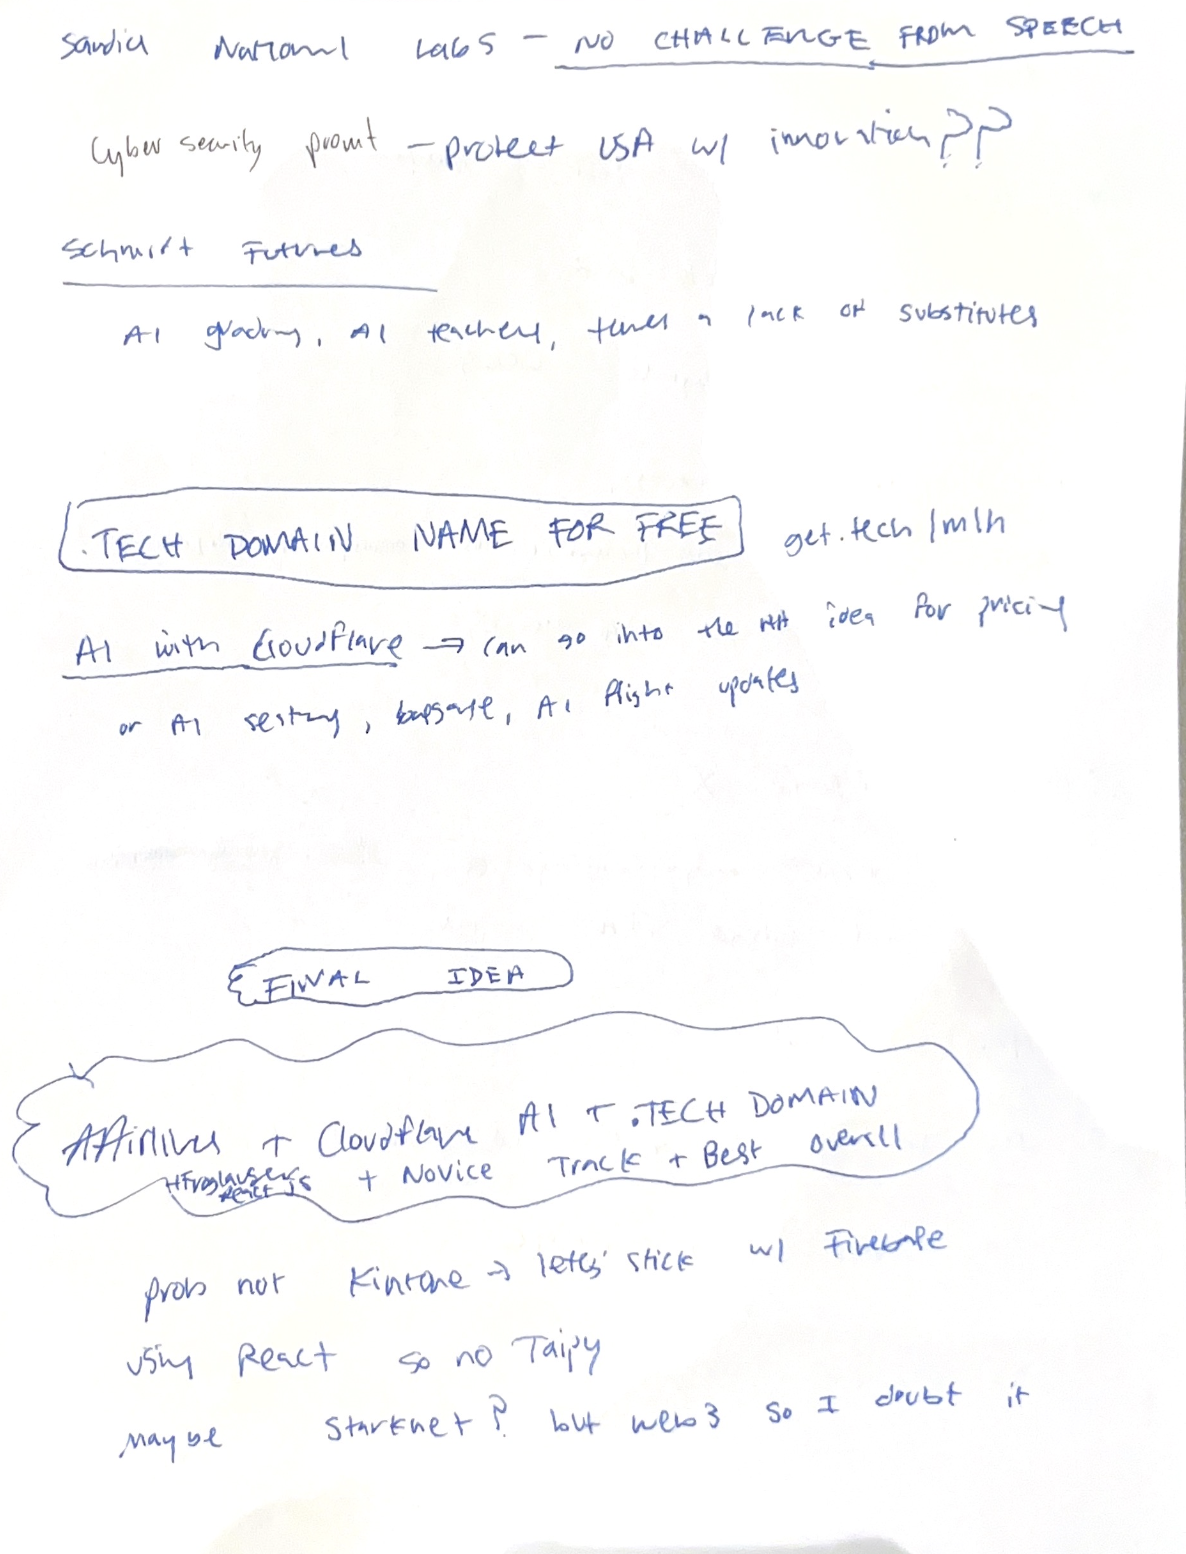 Sandia National Labs - NO CHALLENGE FROM SPEECH
Cyber security promt - protect USA w/ innovation??
Schmidt Futures
AI grading, AI teachers, theres a lack of substitutes
.TECH DOMAIN NAME FOR FREE get.tech/mlh
AI with Cloudflare → can go into the AA idea for pricing
or AI seating, baggage, AI flight updates
FINAL IDEA
AAirlines + Cloudflare AI + .TECH DOMAIN
+ React JS + Novice Track + Best overall
prob not Kintone → lets stick w/ Firebase
using React so no Taipy
maybe Starknet? but web3 so I doubt it